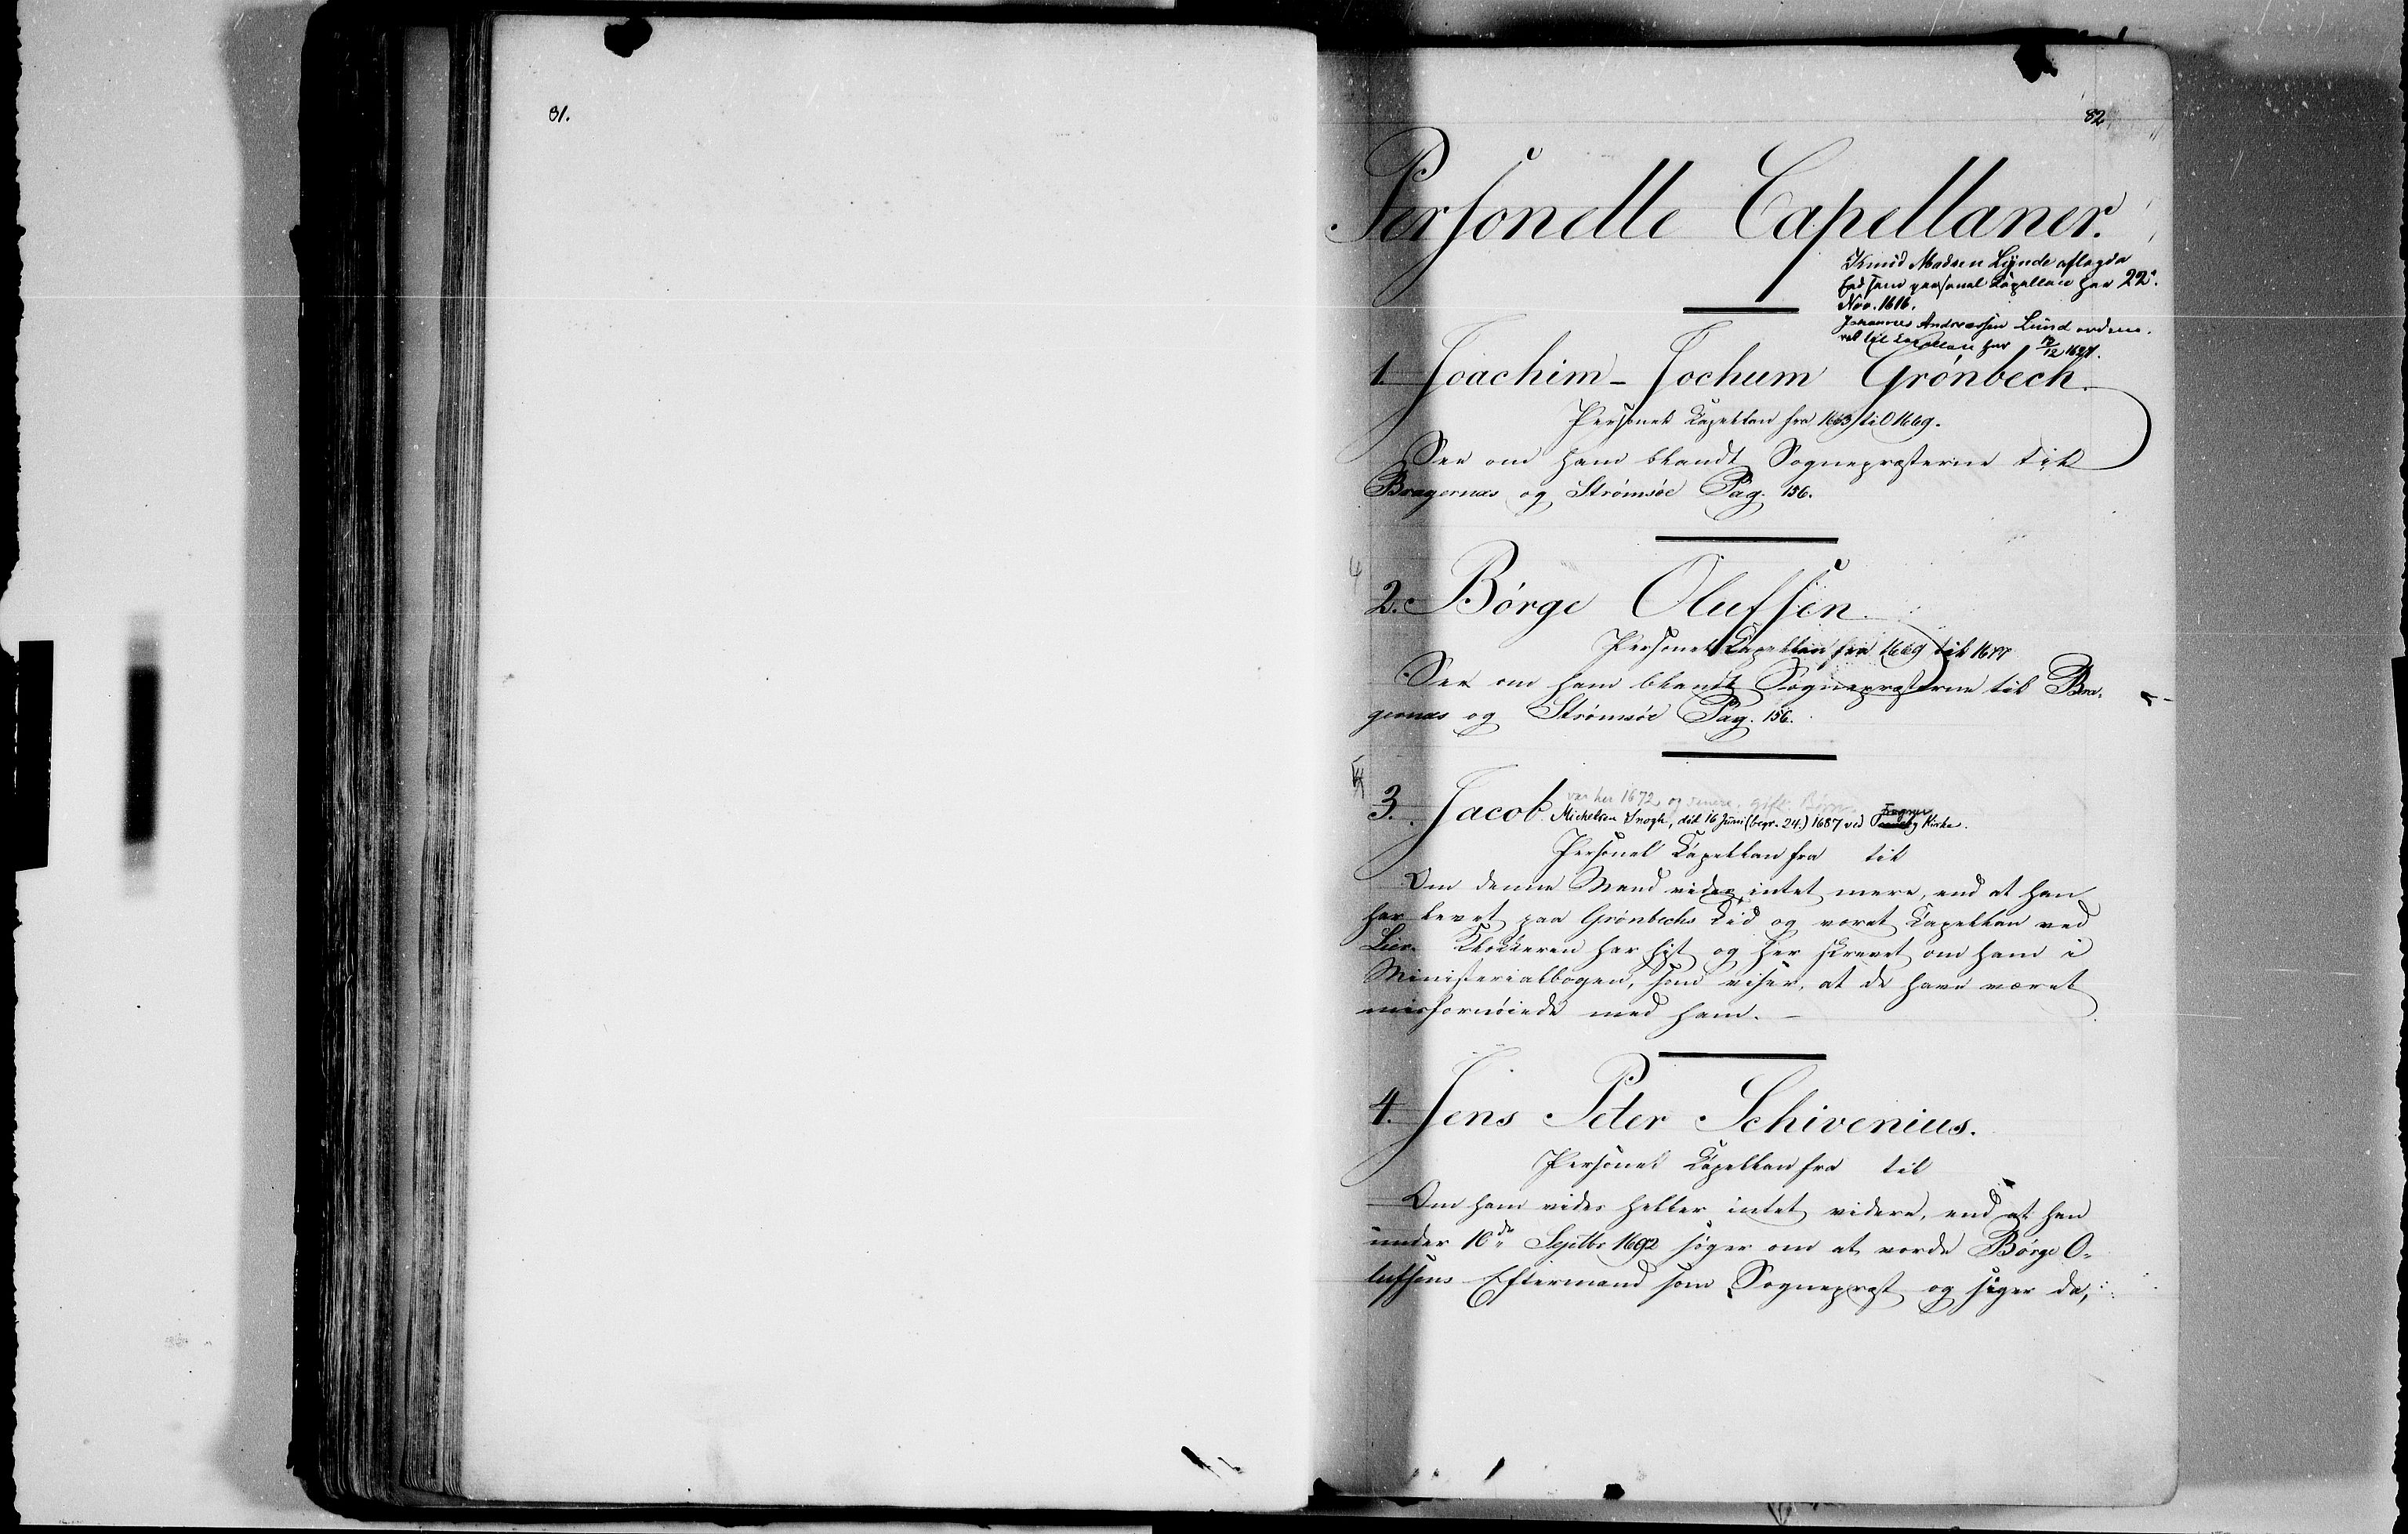 81.
82
Personelle Capellaner.
Knud Madsen Lÿnde aflagde
Ed som personel Kapellan her 22.
Nov. 1616.
Johannes Andreassen Lund ordine-
ret til Kapellan her 12/12 1627.
1. Joachim-Jochum Grønbech.
Personel Kapellan fra 1663 til 1669.
See om ham blandt Sognepræsterne til
Bragernæs og Strømsøe Pag. 156.
2. Børge Oluffsen.
Personel Kapellan fra 1669 til 1677
See om ham blandt Sognepræsterne til Bra-
gernæs og Strømsøe Pag. 156.
var her 1672 og senere, gift. Børn.
3. Jacob Michelsen Snogh, död 16 Juni (begr. 24.) 1687 ved Frogner Kirke.
Personel Kapellan fra til
Om denne Mand vides intet mere, end at han
har levet paa Grønbechs Tid og været Kapellan ved
Lier. Klokkeren har hist og her skrevet om ham i
Ministerialbogen, som viser, at de have været
misfornøiede med ham. –
4. Jens Peter Schivenius.
Personel Kapellan fra til
Om ham vides heller intet videre, end at han
under 10de Septbr 1692 søger om at vorde Børge O-
luffsens Eftermand som Sognepræst og siger da,